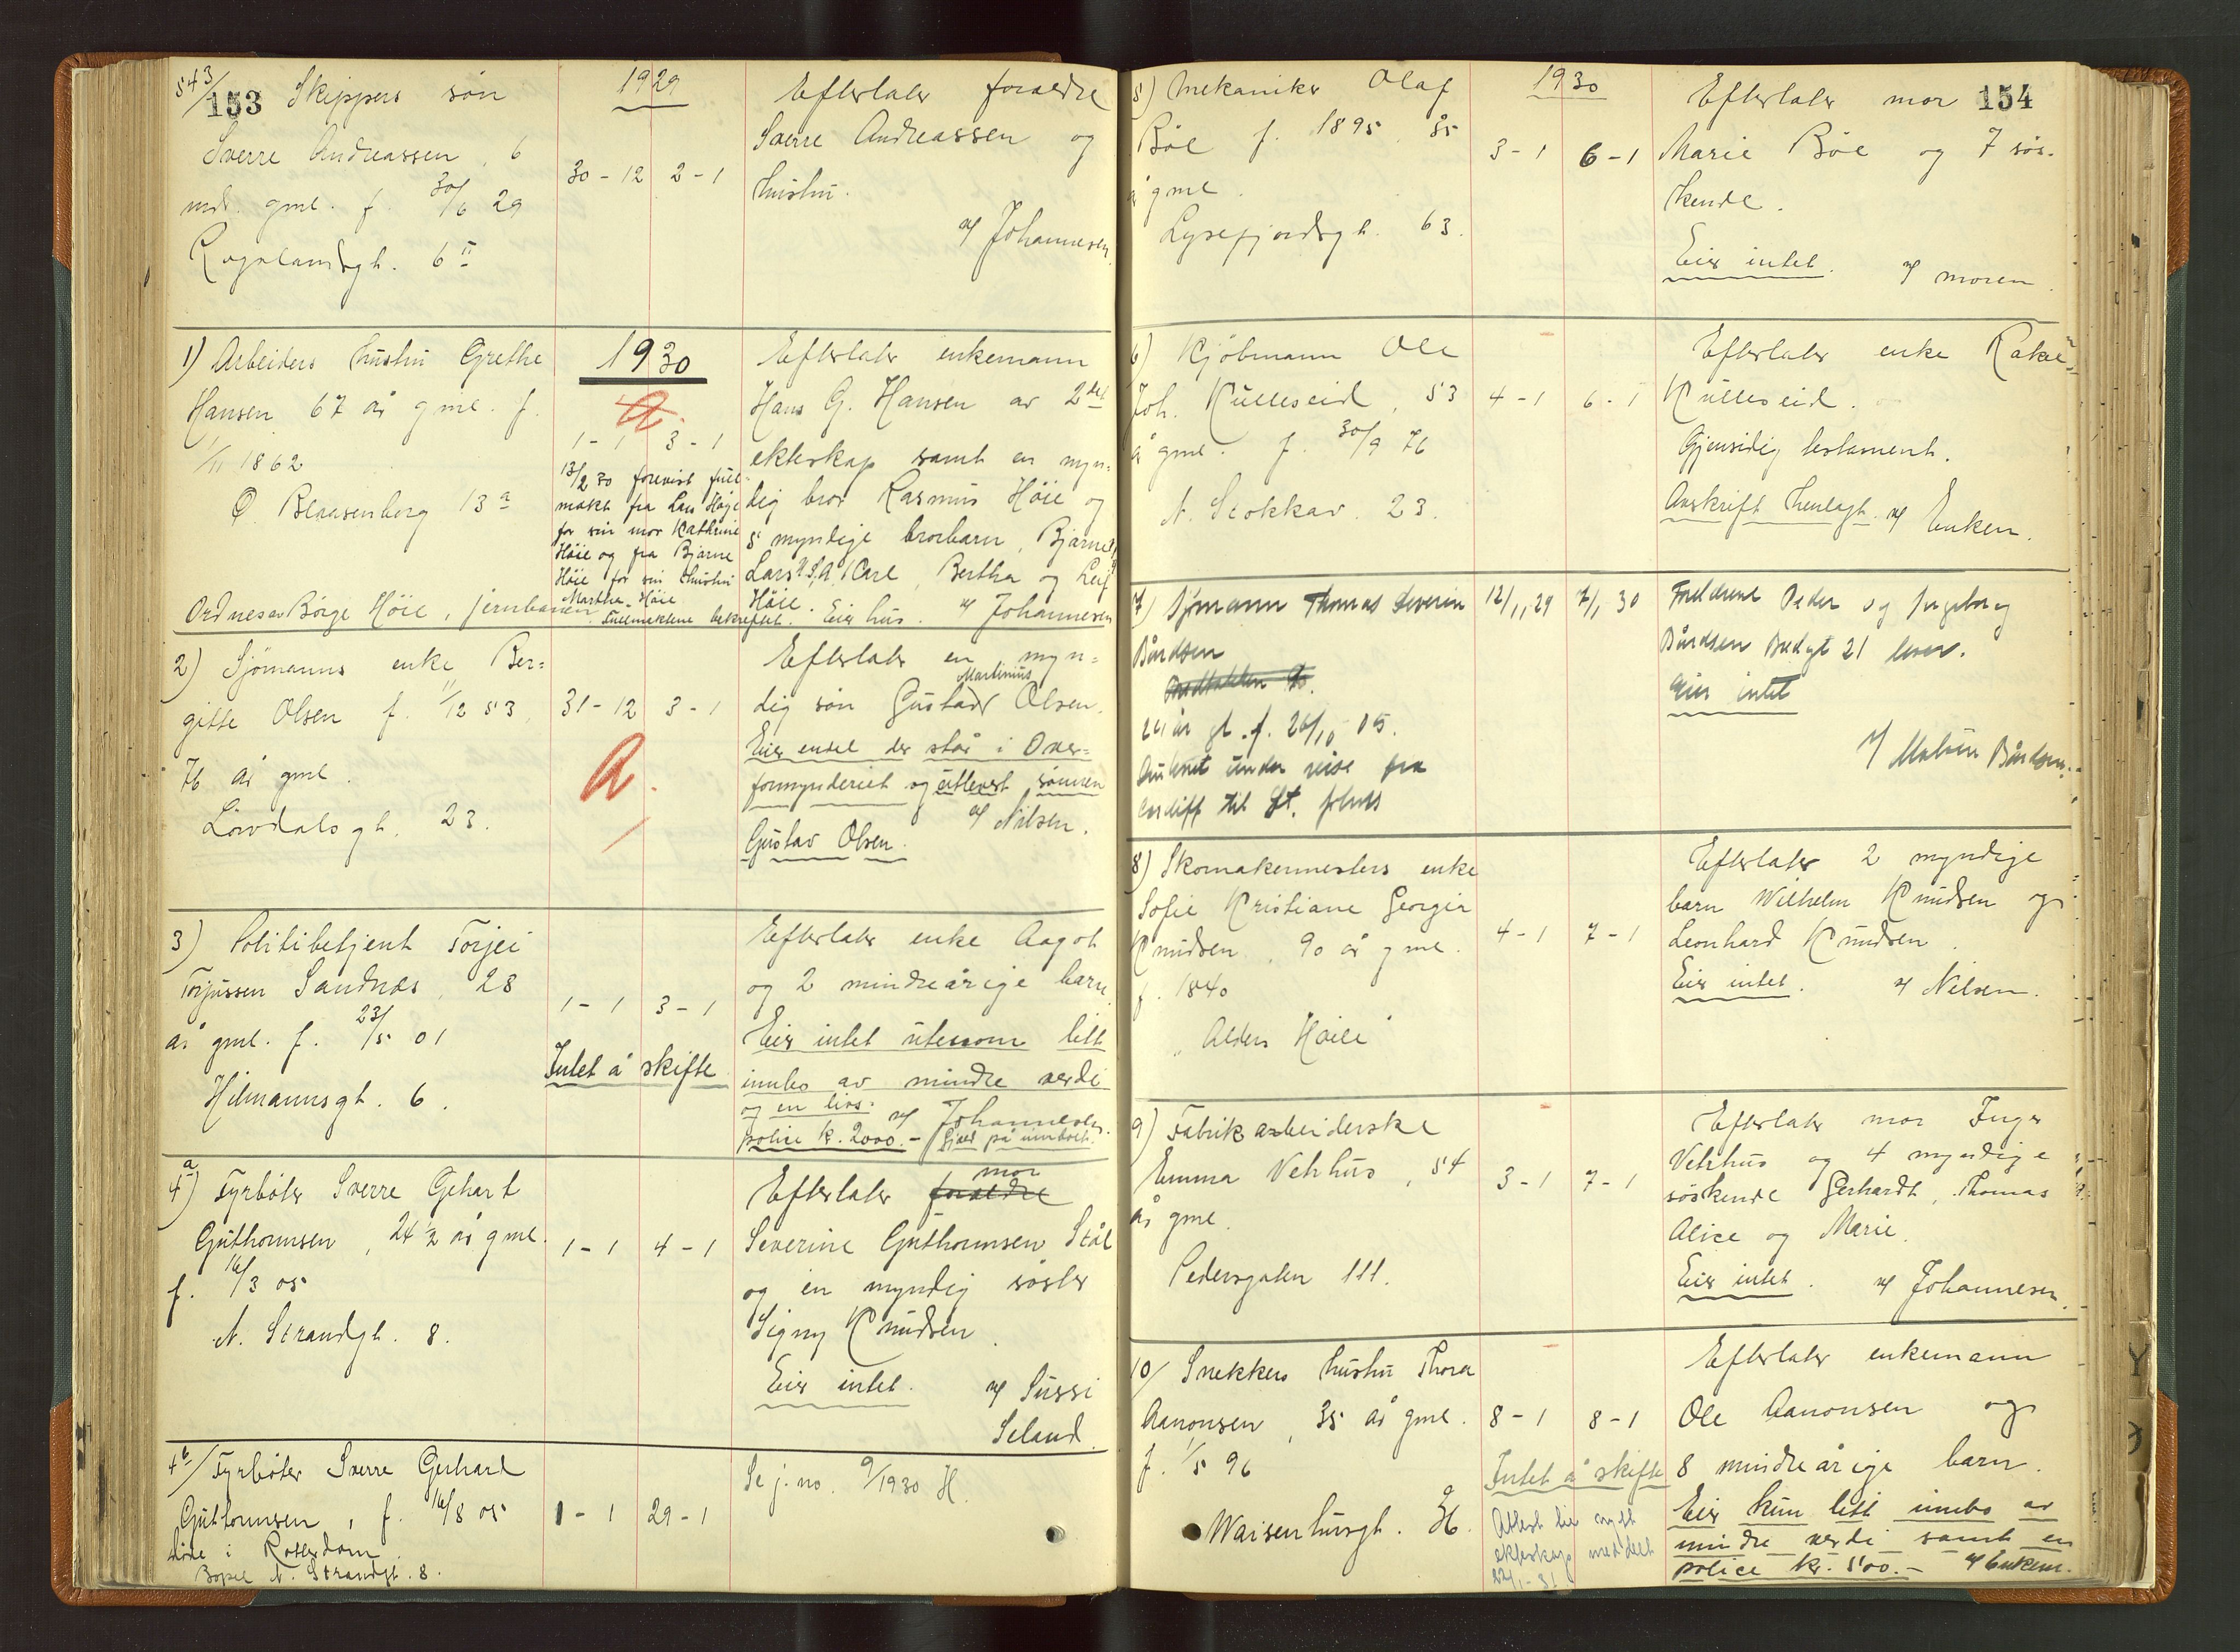 543/
153 Skippers søn
Sverre Andreassen, 6
md. gml. f. 30/6 29
Rogalandsgt. 6 II
1929
30 - 12 2 - 1
Efterlater foraldre
Sverre Andreassen og
hustru.
v/ Johannesen
1) Arbeiders hustru Grethe
Hansen 67 år gml. f.
1/11 1862
Ø. Blaasenborg 13 a
Ordnes av Børge Høie, jernbanen.
1930
a.
1 - 1 3 - 1
13/2 30 forevist full-
makt fra Lars Høie
for sin mor Kathrine
Høie og fra Bjarne
Høie for sin hustru
Marthe Høie
Fullmaktene bekreftet.
Efterlater enkemann
Hans G. Hansen av 2det
ekteskap samt en myn-
dig bror Rasmus Høie og
5 myndige brorbarn, Bjarne,
Lars, Karl, Bertha og Leif
Høie. Eier hus. v/ Johannesen
2) Sjømanns enke Ber-
gitte Olsen f. 11/12 53,
76 år gml.
Løvdalsgt. 23.
31 - 12 3 - 1
a.
Efterlater en myn-
Martinius
dig søn Gustav Olsen.
Eier endel der står i Over-
formynderiet og utlevert sønnen
v/ Nilsen.
Gustav Olsen.
3) Politibetjent Torjei
Torjussen Sandnes, 28
år gml. f. 23/5 01
Hilmannsgt. 6.
1 - 1 3 - 1
Intet å skifte
Efterlater enke Aagot
og 2 mindreårige barn.
Eier intet utenom litt
innbo av mindre verdi
og en livs-
v/ Johannesen.
police kr. 2000.- Gjeld på innboet.
4a) Fyrbøter Sverre Gehart
Guthormsen, 24 1/2 år gml.
f. 16/3 05
N. Strandgt. 8.
1 - 1 4 - 1
mor
Efterlater foraldre
Severine Guthormsen Stål
og en myndig søster
Signy Knudsen.
Eier intet. v/ Sussi
Seland.
4b/ Fyrbøter Sverre Gerhard
Guttormsen, f. 16/8 05
døde i Rotterdam.
Bopel N. Strandgt. 8.
1 - 1 29 - 1
Se j. no. 9/1930 H.
5) Mekaniker Olaf
Bøe f. 1895, 35
år gml.
Lysefjordsgt. 63.
1930
3 - 1 6 - 1
Efterlater mor 154
Marie Bøe og 7 søs-
kende.
Eier intet. v/ moren.
6) Kjøbmann Ole
Joh. Kulleseid, 53
år gml. f. 30/9 76
N. Stokkav. 23.
4 - 1 6 - 1
Efterlater enke Rakel
Kulleseid.
Gjensidig testament.
Avskrift henlagt. v/ Enken.
7) Sjømann Thomas Severin
Bårdsen
24 år gl. f. 26/10 05.
Druknet under reise fra
Cardiff til St. Johns
12/11 29 7/1 30
Foreldrene Peder og Ingeborg
Bårdsen Bredgt 21 lever.
Eier intet
v/ Bårdsen.
8) Skomakermesters enke
Sofie Kristiane Georgia
Knudsen, 90 år gml.
f. 1840
"Alders Hvile"
4 - 1 7 - 1
Efterlater 2 myndige
barn Wilhelm Knudsen og
Leonhard Knudsen.
Eier intet. v/ Nilsen.
9) Fabrikarbeiderske
Emma Vetrhus, 54
år gml.
Pedersgaten 111.
3 - 1 7 - 1
Efterlater mor Inger
Vetrhus og 4 myndige
søskende Gerhardt, Thomas
Alice og Marie.
Eier intet. v/ Johannesen.
10/ Snekkers hustru Thora
Aanonsen, 35 år gml.
f. 1/5 96
Waisenhusgt.
8 - 1 8 - 1
Intet å skifte
Attest til nytt
ekteskap meddelt
Efterlater enkemann
Ole Aanonsen og
8 mindreårige barn.
Eier kun litt innbo av
mindre verdi samt en
police kr. 500.- v/ Enkem.